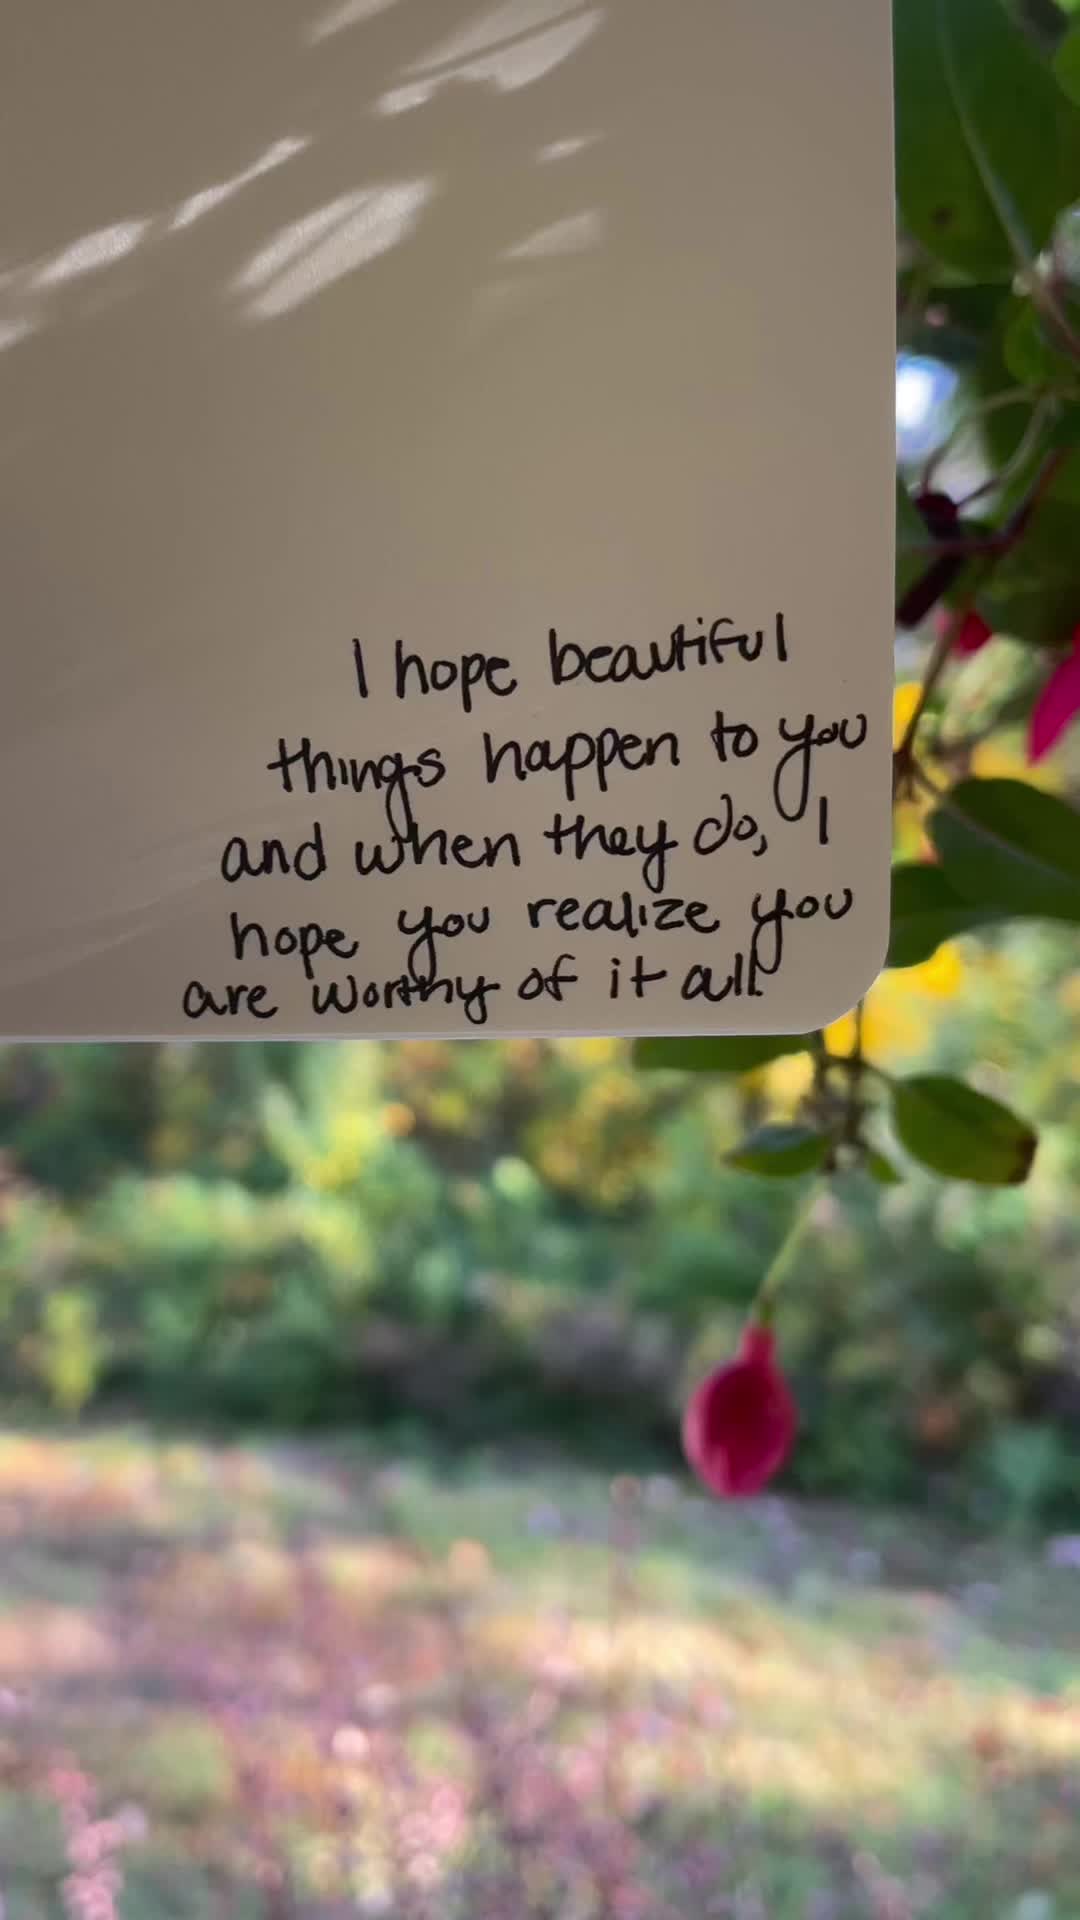 I hope beautiful
things happen to you
and when they do, I
hope you realize you
are worthy of it all.